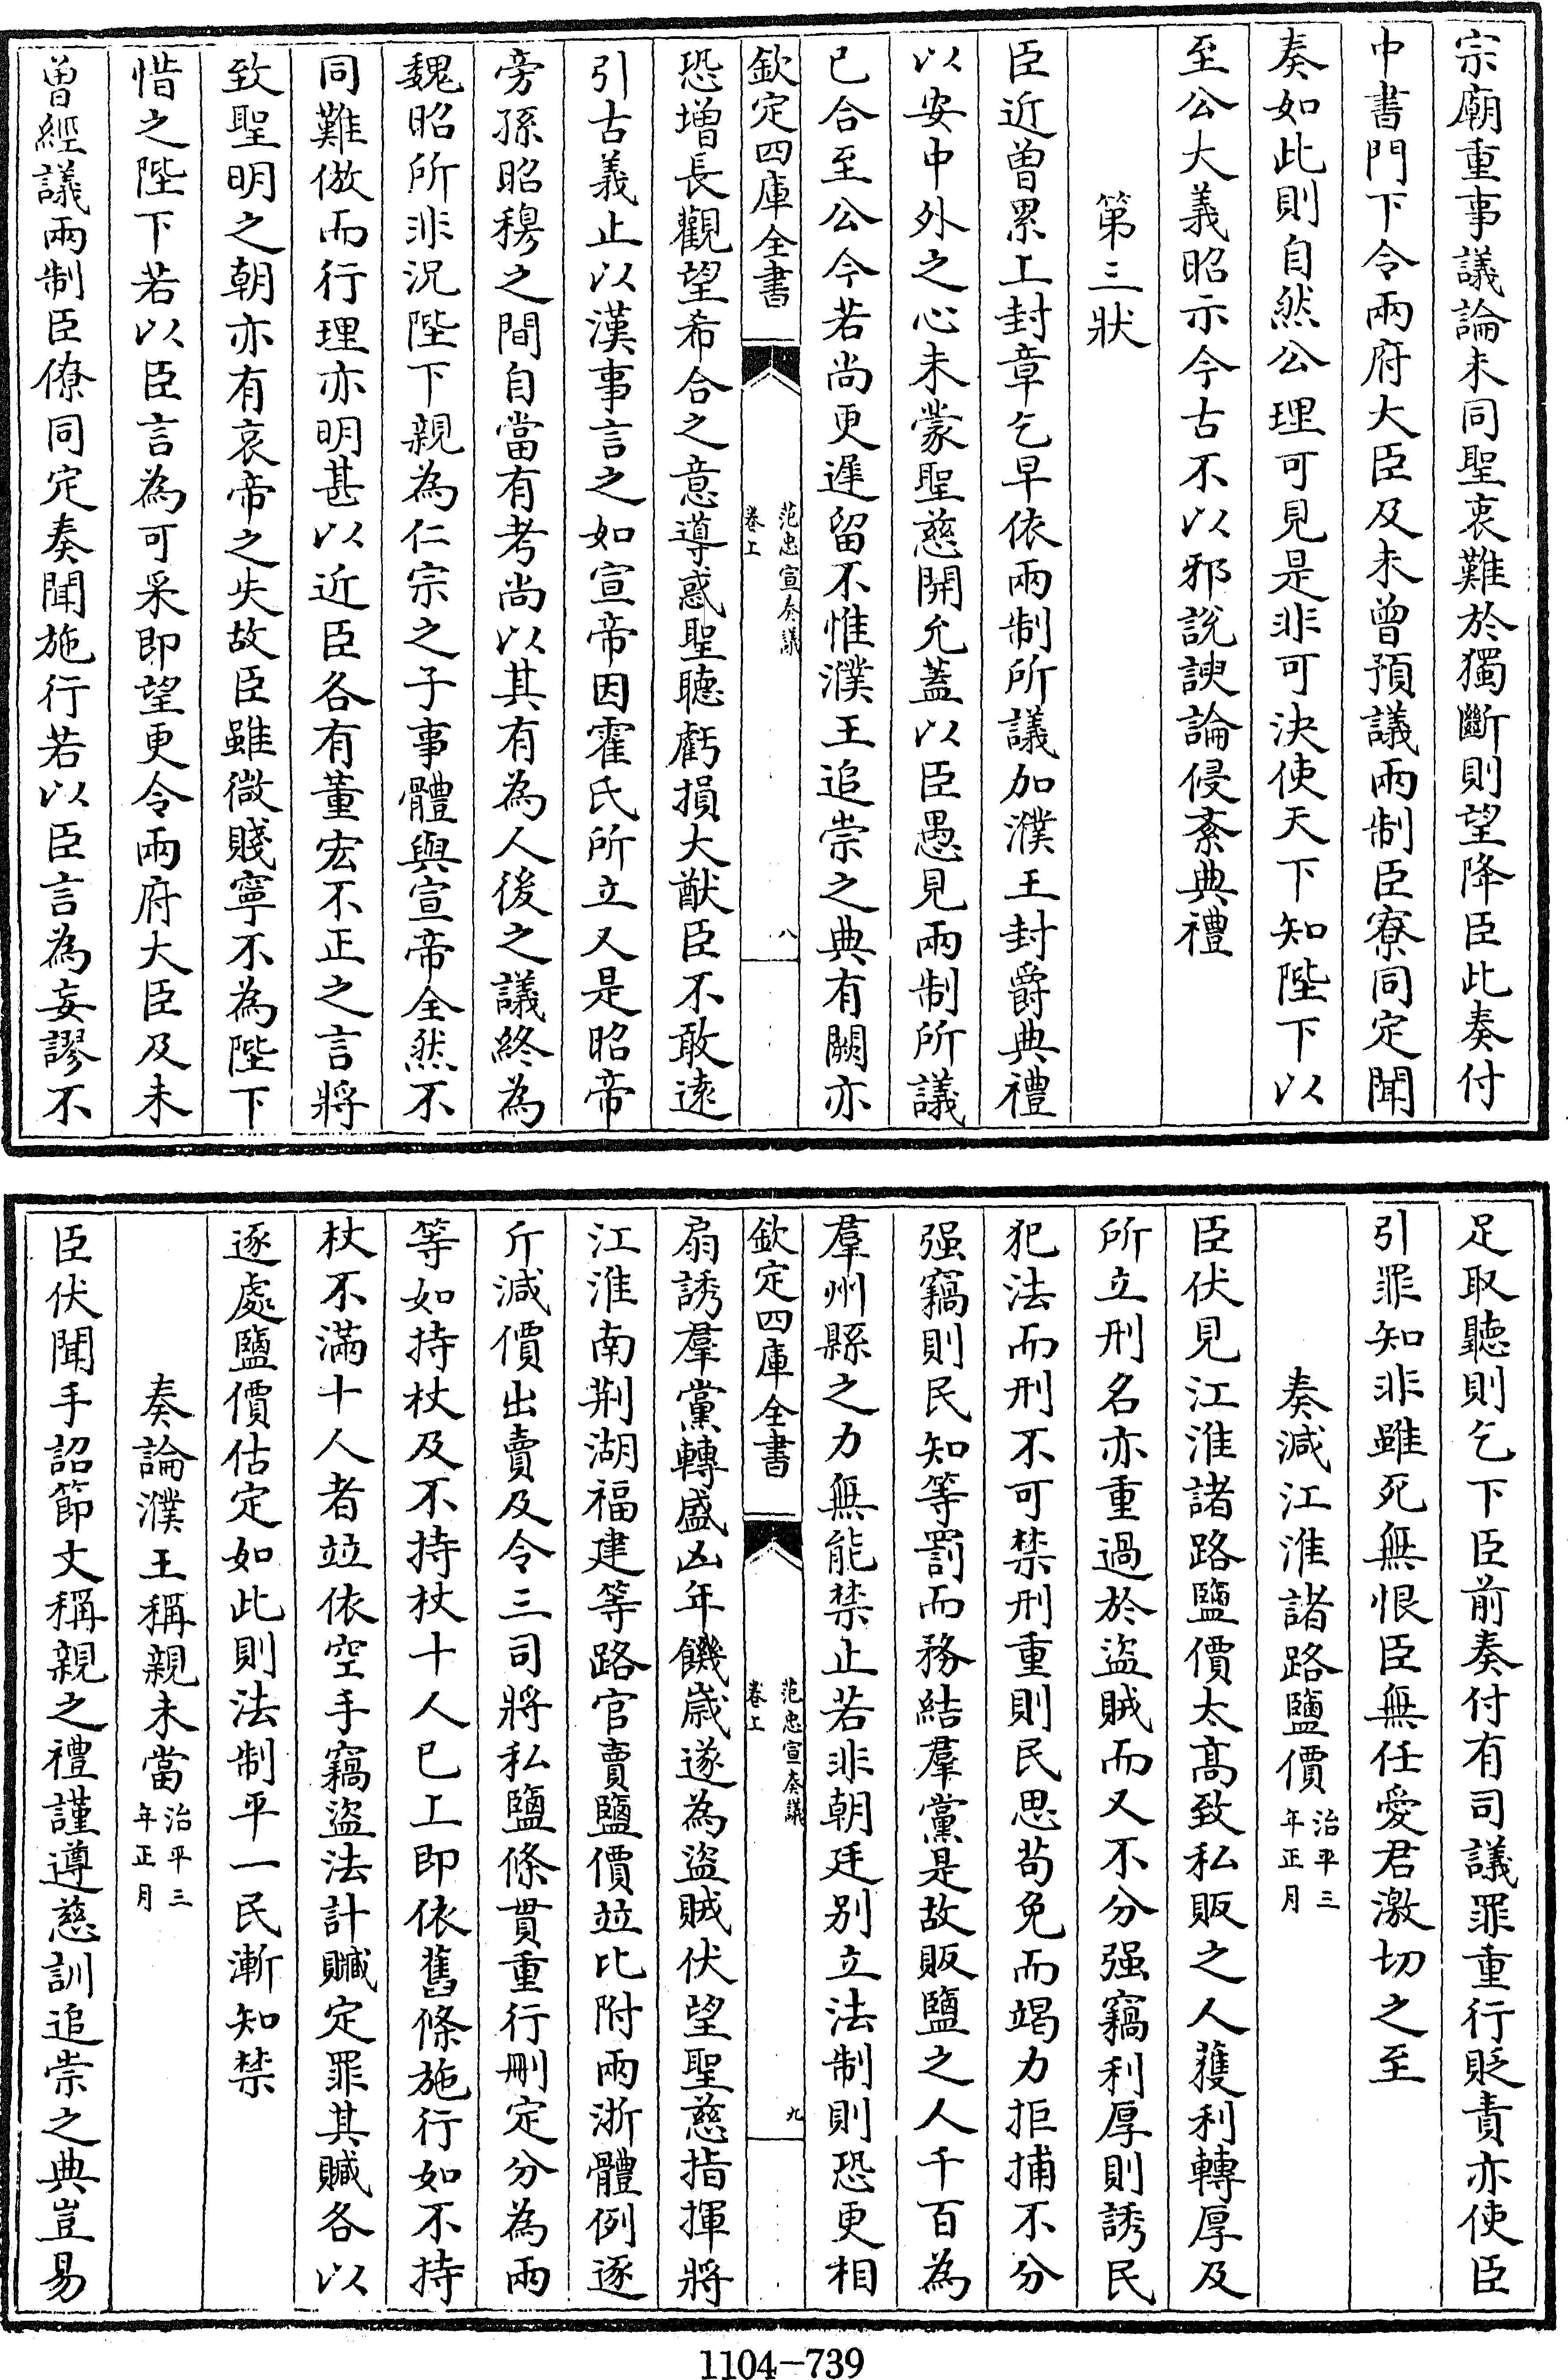 宗廟重事議論未同聖衷難於獨斷則望降臣此奏付
中書門下令兩府大臣及未曾預議兩制臣寮同定聞
奏如此則自然公理可見是非可決使天下知陛下以
至公大義昭示今古不以邪說諛論侵紊典禮
第三狀
臣近曾累上封章乞早依兩制所議加濮王封爵典禮
以安中外之心未蒙聖慈開允蓋以臣愚見兩制所議
已合至公今若尚更遲留不惟濮王追崇之典有闕亦
欽定四庫全書
范忠宣奏議
卷上
八
恐增長觀望希合之意導惑聖聽虧損大猷臣不敢遠
引古義止以漢事言之如宣帝因霍氏所立又是昭帝
旁孫昭穆之間自當有考尚以其有為人後之議終為
魏昭所非況陛下親為仁宗之子事體與宣帝全然不
同難倣而行理亦明甚以近臣各有董宏不正之言將
致聖明之朝亦有哀帝之失故臣雖微賤寧不為陛下
惜之陛下若以臣言為可采即望更令兩府大臣及未
曾經議兩制臣僚同定奏聞施行若以臣言為妄謬不
足取聽則乞下臣前奏付有司議罪重行貶責亦使臣
引罪知非雖死無恨臣無任愛君激切之至
奏減江淮諸路鹽價治平三年正月
臣伏見江淮諸路鹽價太高致私販之人獲利轉厚及
所立刑名亦重過於盜賊而又不分强竊利厚則誘民
犯法而刑不可禁刑重則民思苟免而竭力拒捕不分
强竊則民知等罰而務結羣黨是故販鹽之人千百為
羣州縣之力無能禁止若非朝廷别立法制則恐更相
欽定四庫全書
范忠宣奏議
卷上
九
扇誘羣黨轉盛凶年饑歲遂為盜賊伏望聖慈指揮將
江淮南荆湖福建等路官賣鹽價竝比附兩浙體例逐
斤減價出賣及令三司將私鹽條貫重行刪定分為兩
等如持杖及不持杖十人已上即依舊條施行如不持
杖不滿十人者竝依空手竊盜法計贓定罪其贓各以
逐處鹽價估定如此則法制平一民漸知禁
奏論濮王稱親未當治平三年正月
臣伏聞手詔節文稱親之禮謹遵慈訓追崇之典豈易
1104-739